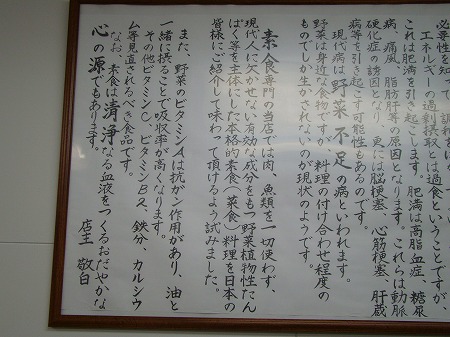 必要性を知って、調和をはか
エネルギーの過剰摂取とは過食ということですが、
これは肥満を引き起こします。肥満は高脂血症、糖尿
病、痛風、脂肪肝等の原因となります。これらは動脈
硬化症の誘因となり、更には脳梗塞、心筋梗塞、肝蔵
病等を引き起こす可能性もあるのです。
現代病は野菜不足の病といわれます。
野菜は身近な食物ですが、料理の付け合わせ程度の
ものでしか生かされないのが現状のようです。
素食専門の当店では肉、魚類を一切使わず、
現代人に欠かせない有効な成分をもつ野菜植物性たん
ぱく等を主体にした本格的素食(菜食)料理を日本の
皆様にご紹介して味わって頂けるよう試みました。
また、野菜のビタミンAは抗ガン作用があり、油と
一緒に摂ることで吸収率が高くなります。
その他ビタミンC、ビタミンB2、鉄分、カルシウ
ム等見直されるべき食品です。
なお 素食は清浄なる血液をつくるおだやかな
心の源でもあります。
店主 敬白